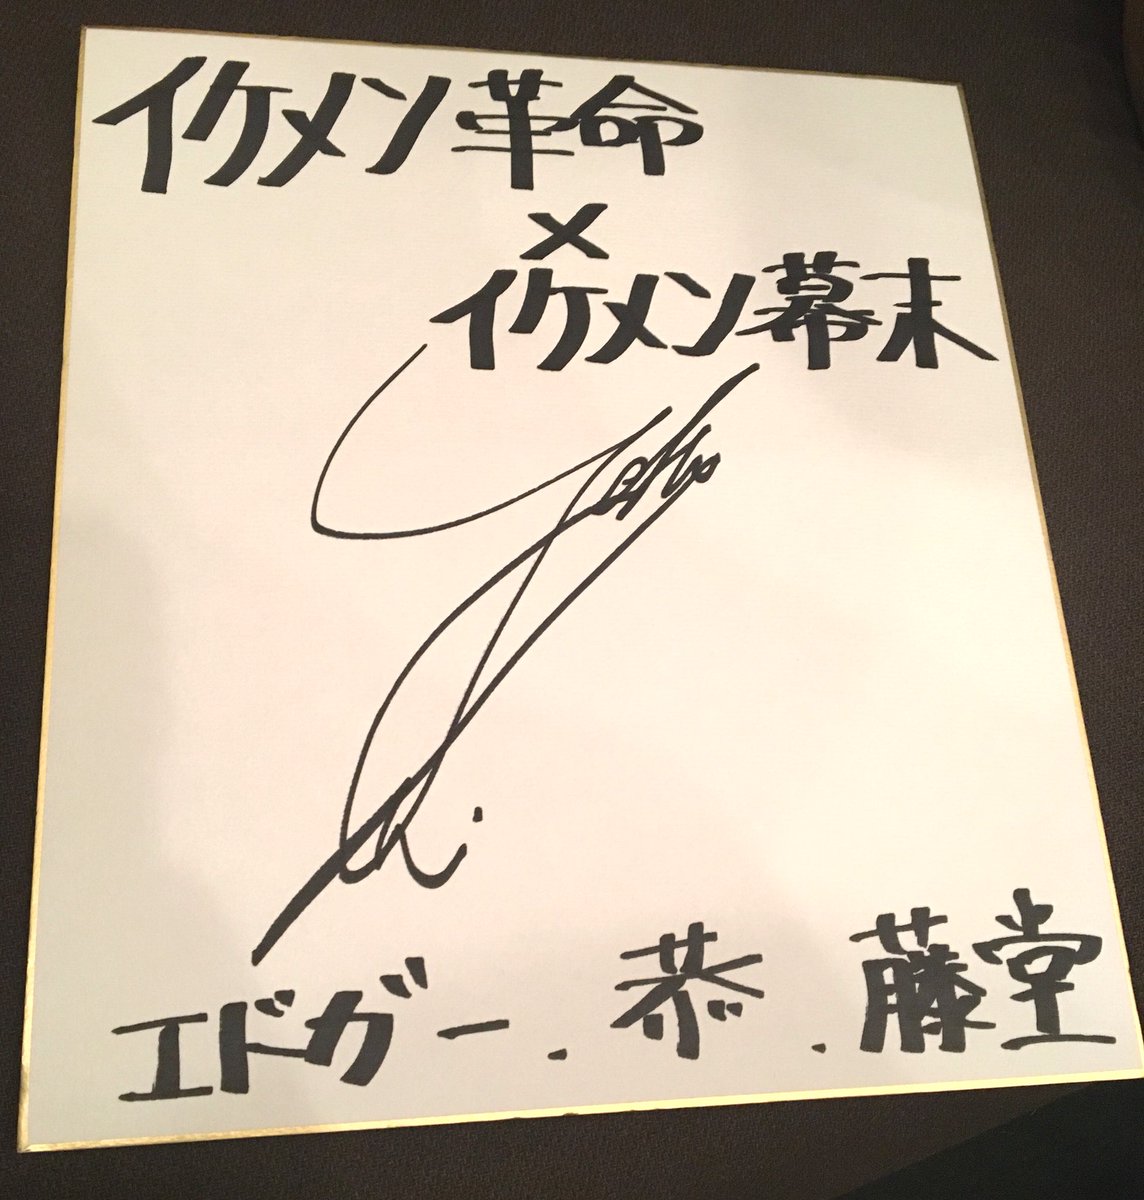 イケメン革命
×
イケメン幕末
エドガー.恭.藤堂